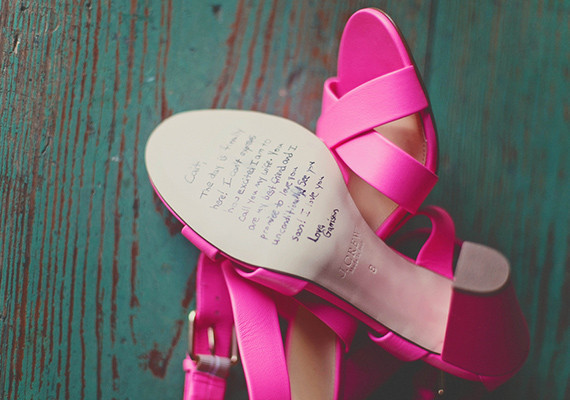 The day is finally
here! I can't express
how excited I am to
call you my wife. You
are my best friend and I
promise to love you
unconditionally! See you
soon! I love you
Love
J.CREW
8